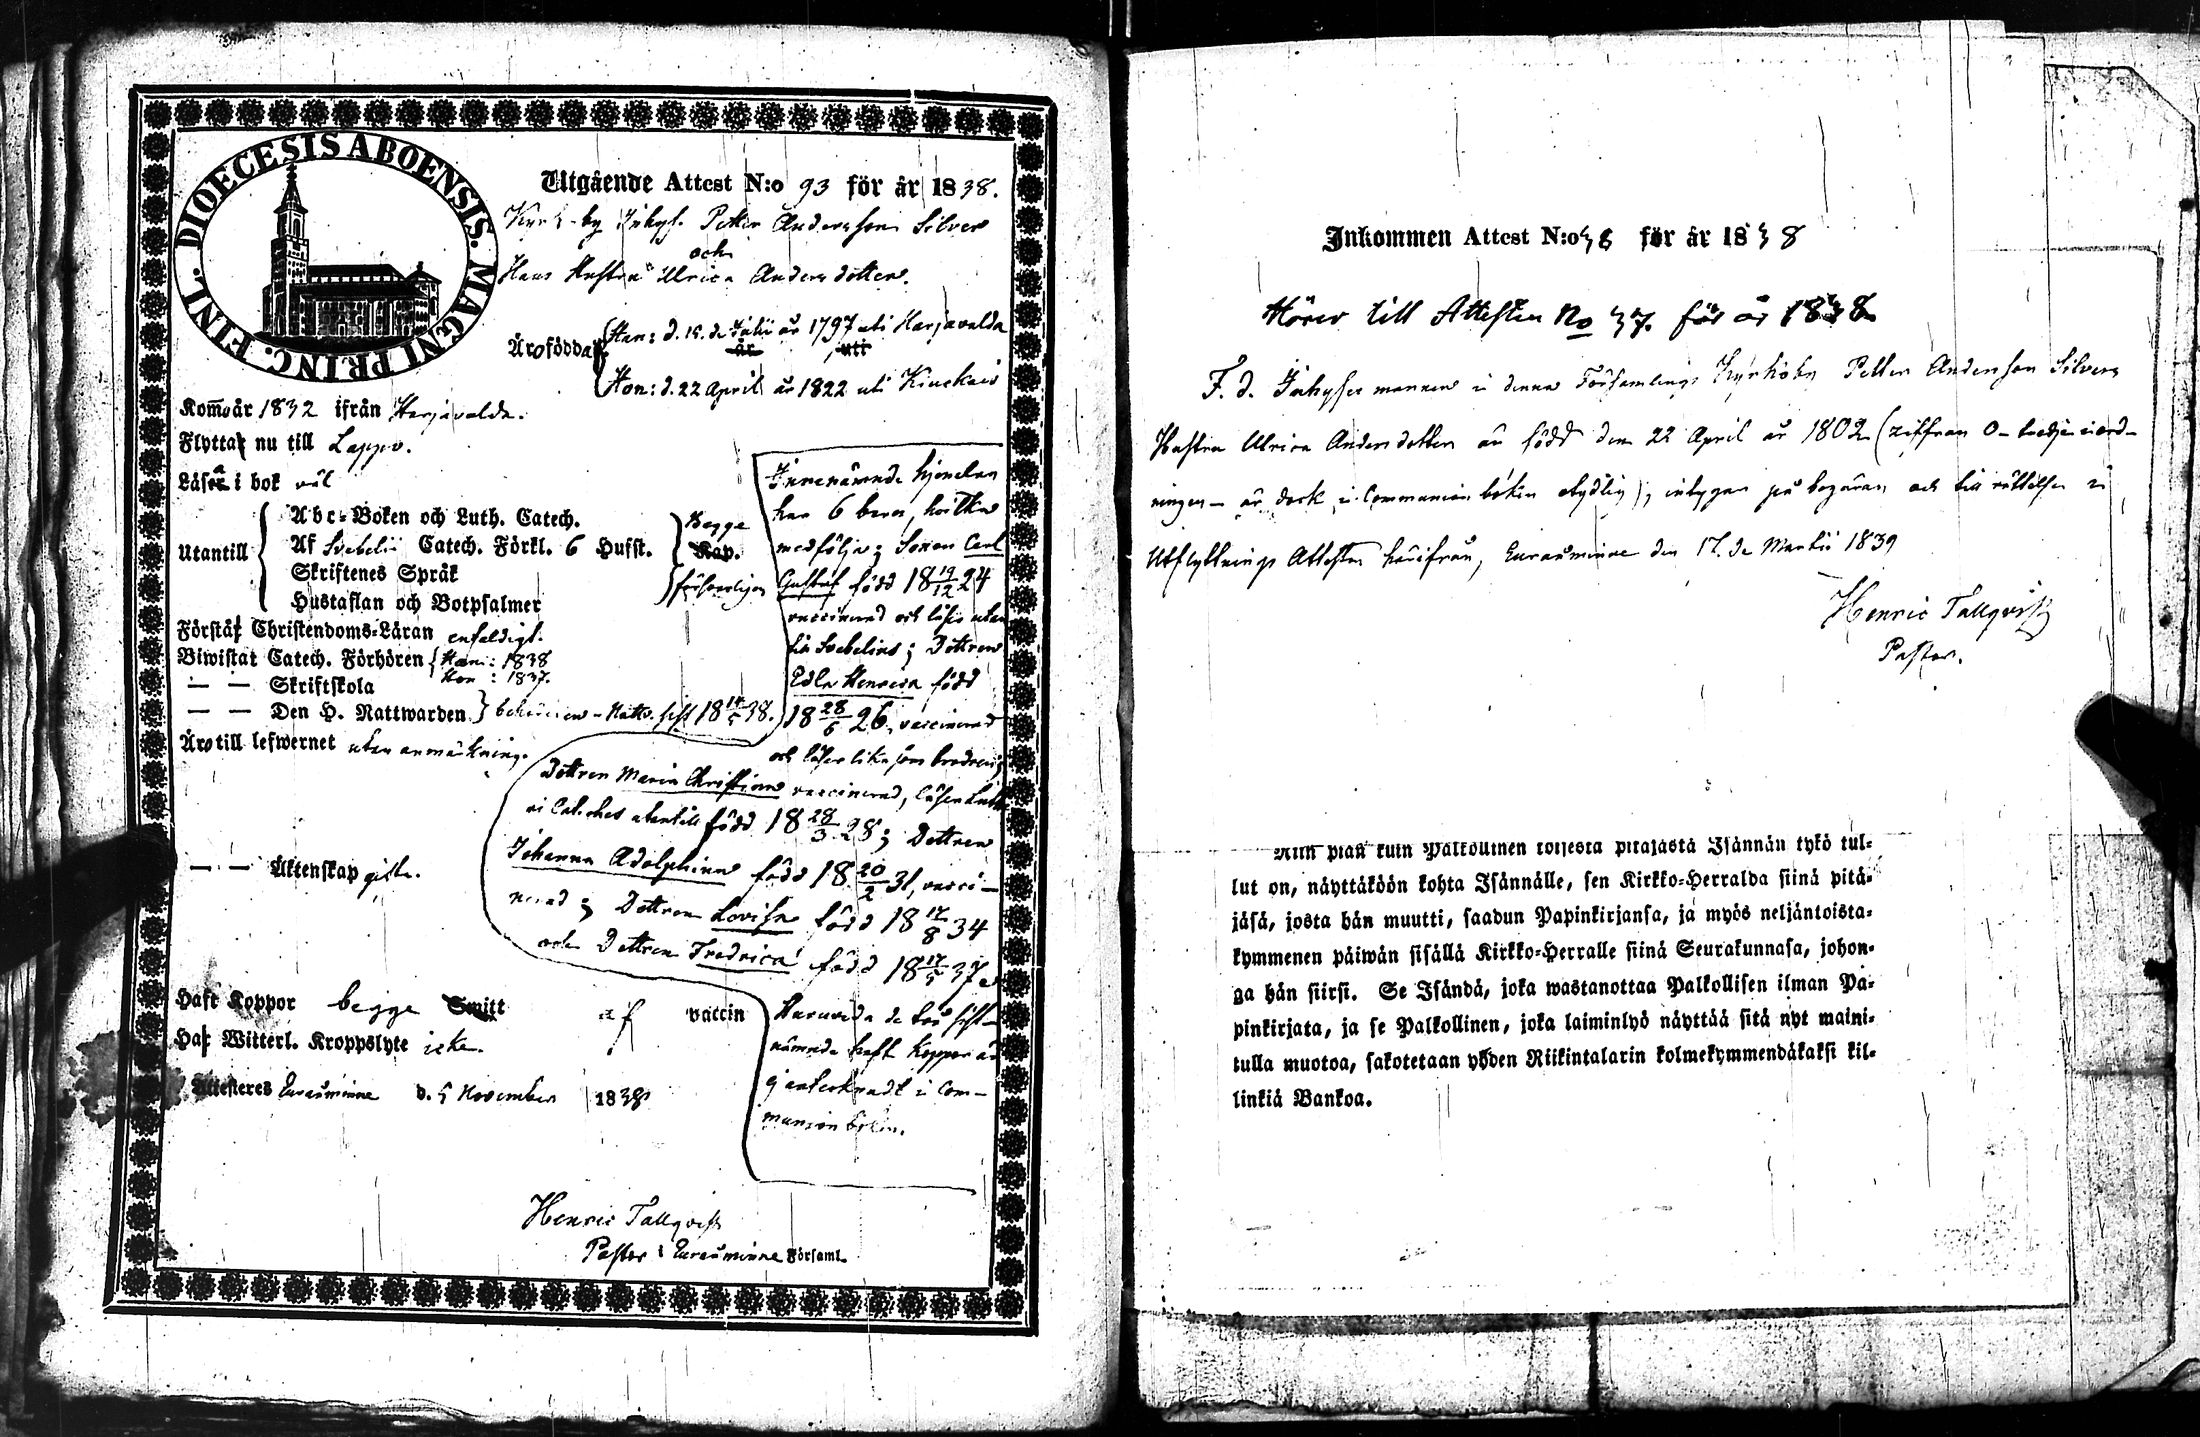 DIOECESIS ABOENSIS. MAGNI PRINC. FINL.
Utgående Attest N:o 93 för år 1838.
Kyrkby Inhys. Petter Andersson Silver
och
Hans Hustru Ulrica Anders dotter.
Äro födda Han: d. 15. de Julii år 1797 uti Harjavalda
år uti
Hon: d. 22 April år 1822 uti Kiuckais
Kom̄o år 1832 ifrån Harjavalda.
Flytta nu till Lappo.
Läsa i bok väl
Utantill
Abc-Boken och Luth. Catech.
Af Svebelii Catech. Förkl. 6 Hufst.
Skriftenes Språk
Hustaflan och Botpsalmer
Begge
Kap.
försvarligen
Förstå Christendoms-Läran enfaldigt.
Biwistat Catech. Förhören Han: 1838
Hon: 1837.
— — Skriftskola
— — Den H. Nattwarden. Nattv. sist 18 38.
Äro till lefwernet utan anmärkning.
— — Äktenskap gifte.
Innenämnde hjonelag
har 6 barn, hvilka
medfölja; Sonen Carl
Gustaf född 18 19/12 24
vaccinerad och läser utan
till Svebelius; Dottren
Edla Henrica född
18 28/6 26, vaccinerad
och läser lika som brodren;
Dottren Maria Christina vaccinerad, läser Luth
ri Catches utantill född 18 28/3 28; Dottren
Johanna Adolphina född 18 20/2 31, vacci-
nerad; Dottren Lovisa född 18 17/8 34
och Dottren Fredrica född 18 17/5 37
Haft Koppor begge Smitt af vaccin
Ha Witterl. Kroppslyte icke.
Huruvida de två sist-
nämnde haft koppor är
ej antecknadt i Com-
munion boken.
Attesteres Euraåminne d. 5 November 1838
Henric Tallqvist
Pastor i Euraåminne Församl.
Inkommen Attest N:o 38 för år 1838
Hörer till Attesten No 37. för år 1838
F. d. Inhyses mannen i denna Församlings Kyrkoby Petter Andersson Silvers
Hustru Ulrica Anders dotter är född den 22 April år 1802 (ziffran 0 - tredje i ord-
ningen - är dock i Communion boken otydlig), intygar på begäran och till rättelse i
Utflyttnings Attesten härifrån, Euraåminne den 17. de Martii 1839
Henric Tallqvist
Pastor.
Niin pian kuin Palkollinen toisesta pitäjästä Isännän tykö tul-
lut on, näyttäköön kohta Isännälle, sen Kirkko-Herralda siinä pitä-
jäsä, josta hän muutti, saadun Papinkirjansa, ja myös neljäntoista-
kymmenen päiwän sisällä Kirkko-Herralle siinä Seurakunnasa, johon-
ga hän siirsi. Se Isändä, joka wastanottaa Palkollisen ilman Pa-
pinkirjata, ja se Palkollinen, joka laiminlyö näyttää sitä nyt maini-
tulla muotoa, sakotetaan yhden Riikintalarin kolmekymmendäkaksi kil-
linkiä Bankoa.